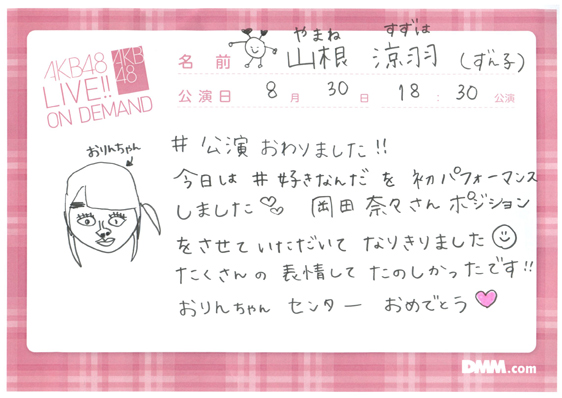 AKB48
LIVE!!
ON DEMAND
AKB
48
やまね すずは
名前 山根 涼羽 (ずん子)
公演日 8月 30日 18:30 公演
おりんちゃん
# 公演 おわりました!!
今日は #好きなんだ を 初パフォーマンス
しました♡♡ 岡田奈々さんポジション
をさせていただいて なりきりました☺
たくさんの 表情して たのしかったです!!
おりんちゃん センター おめでとう♥
DMM.com